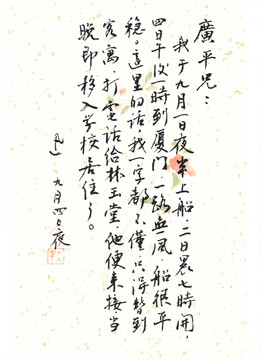 廣平兄：
我于九月一日夜半上船，二日晨七時開，
四日午後一時到廈門，一路無風，船很平
稳。這里的話，我一字都不懂，只得暫到
客寓，打電話給林玉堂，他便來接，當
晚即移入学校居住了。
迅 九月四日夜